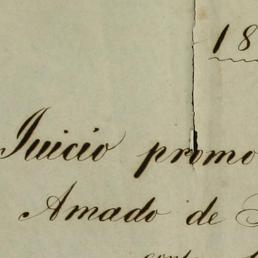 18
Juicio promo
Amado de
cont